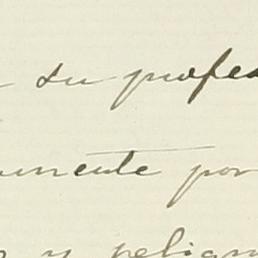 su profes
mente por
y peligr